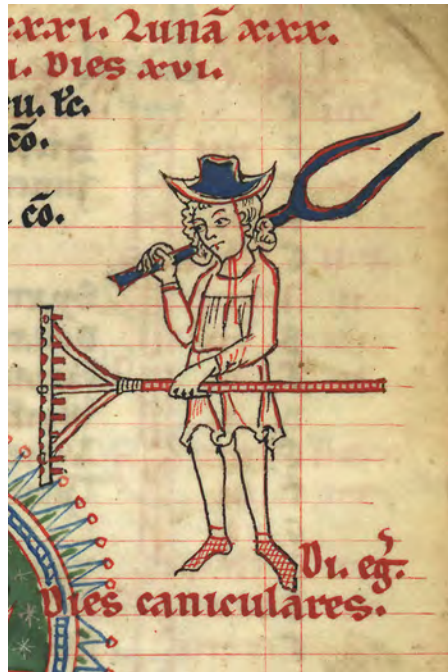 xxxi. Lunā xxx.
i. Dies xvi.
u. kc.
cō.
cō.
Di. eg̃.
Dies caniculares.